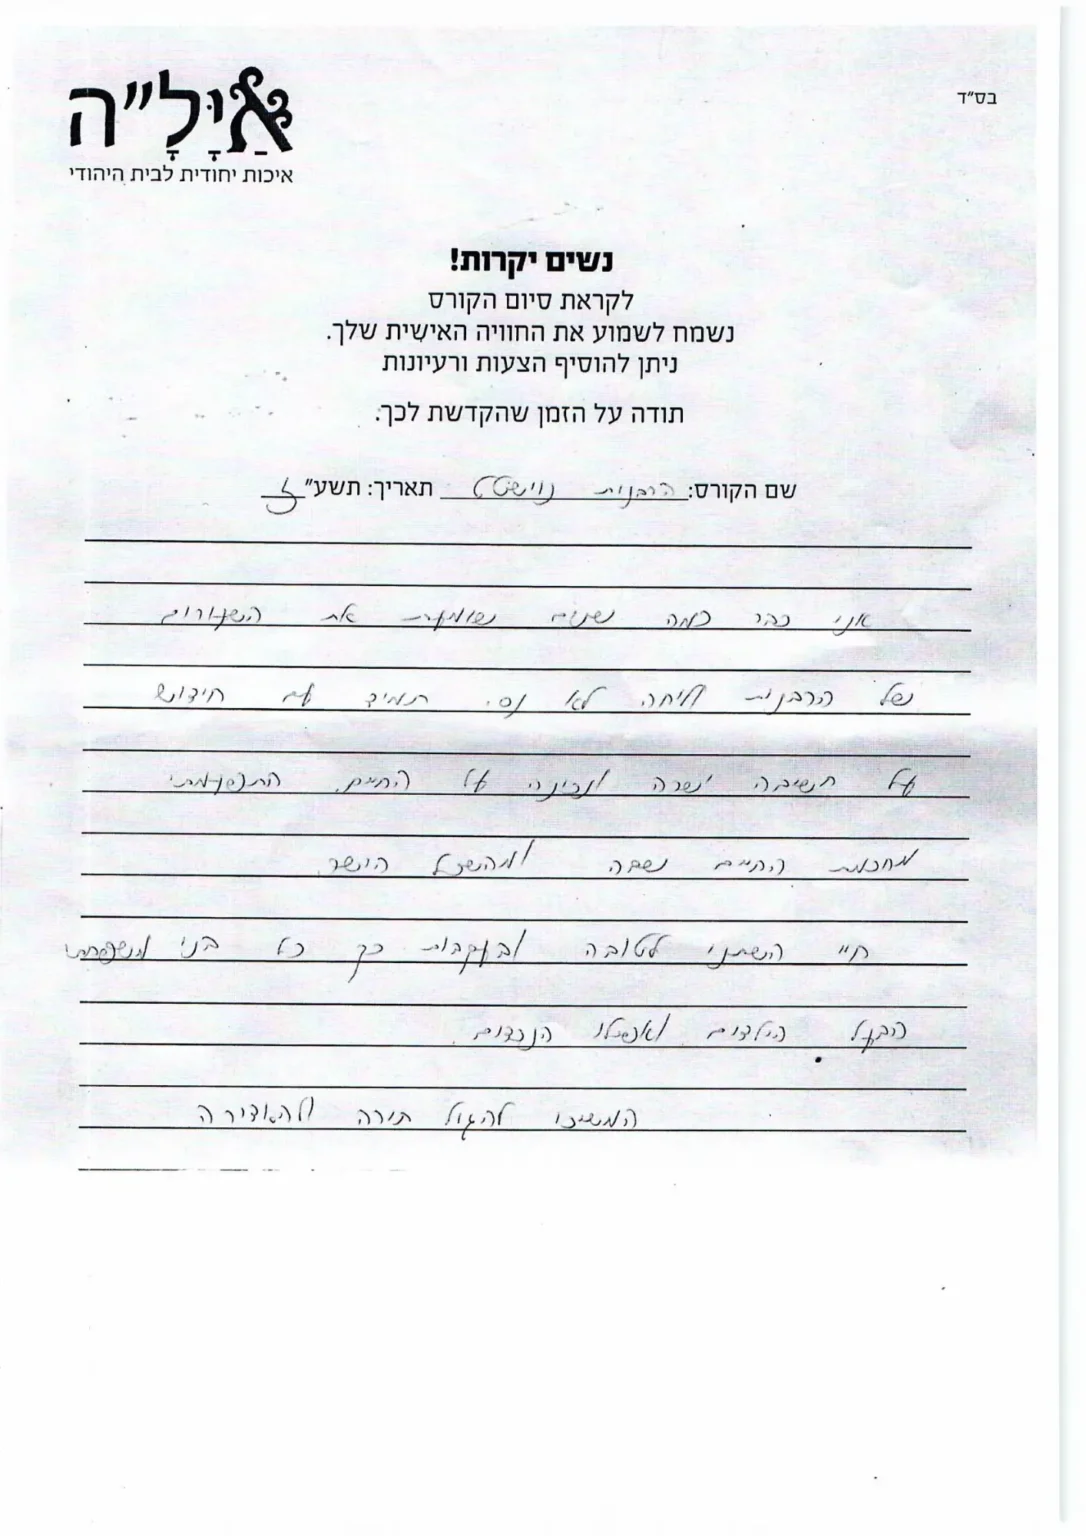 בס"ד
אַיָּלָ"ה
איכות יחודית לבית היהודי
נשים יקרות!
לקראת סיום הקורס
נשמח לשמוע את החוויה האישית שלך.
ניתן להוסיף הצעות ורעיונות
תודה על הזמן שהקדשת לכך.
שם הקורס: הרבנית נוישטט תאריך: תשע"ז
אני כבר כמה שנים שומעת את השעורים
של הרבנית וליחה לא נס. תמיד עם חידוש
על חשיבה ישרה ונכונה על החיים.
מחכמת החיים שבה ומהשכל הישר.
חיי השתנו לטובה ובעקבות כך כל בני משפחתי
הבעל הילדים ואפילו הנכדים
המשיכו להגדל תורה ולהאדירה